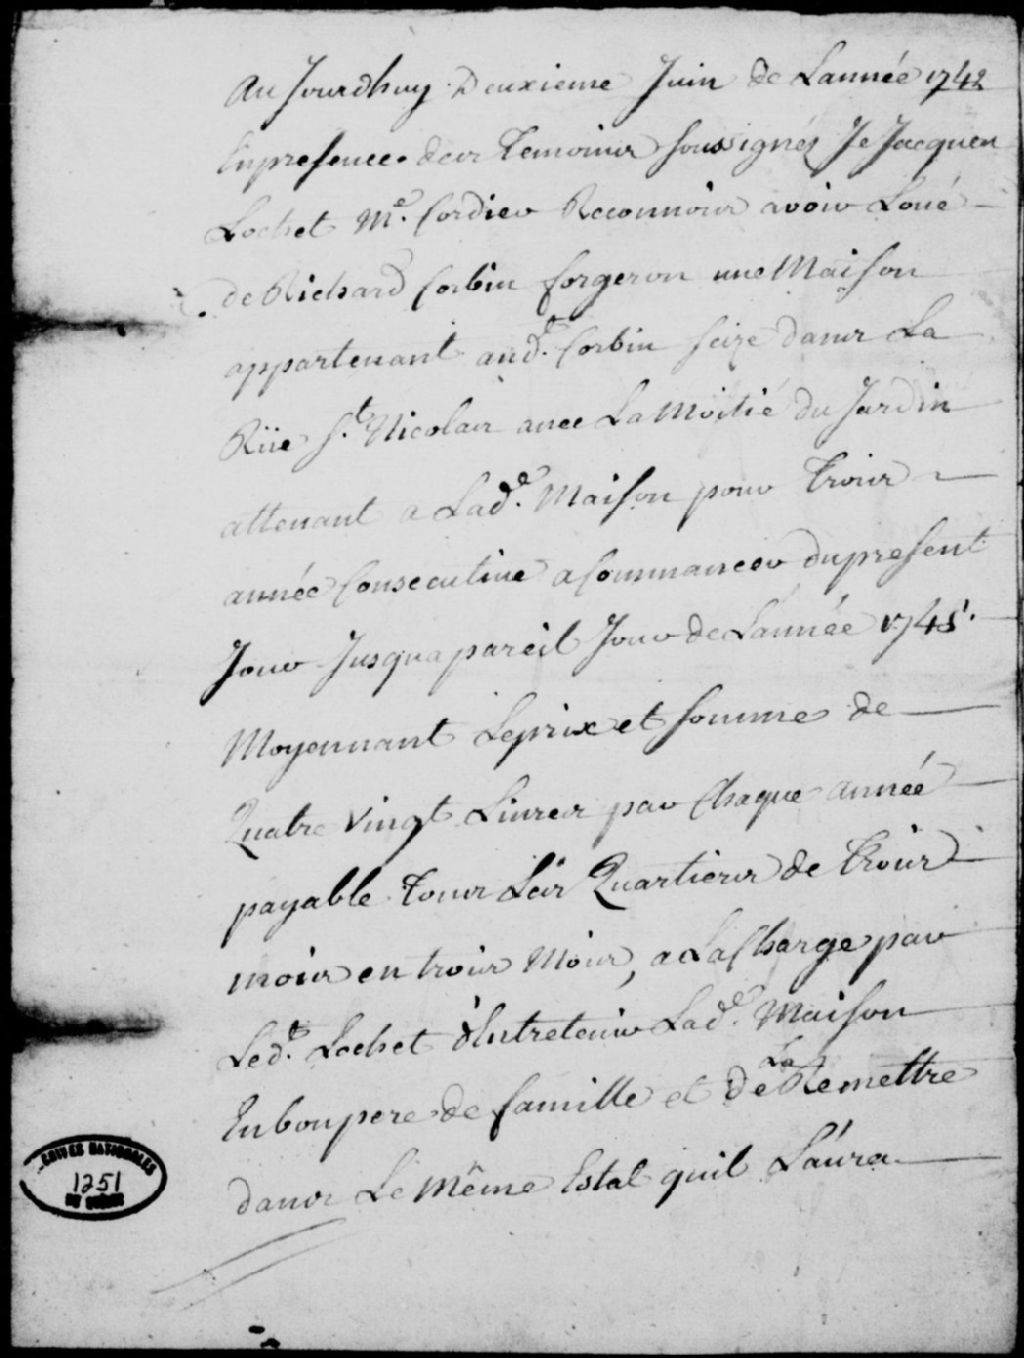 Au Jourdhuy Deuxieme Juin de Lannée 1742
En presence des Temoins soussignés Je Jacques
Lochet Me. Cordier Reconnois avoir Loué
de Richard Corbin forgeron une Maison
appartenant aud. Corbin seize dans La
Rüe St. Nicolas avec La Moitié du Jardin
attenant a Lade. Maison pour Trois
année Consecutive a Commancer du present
Jour Jusqua pareil Jour de Lannée 1745.
Moyennant Le prix et somme de
Quatre Vingt Livres par Chaque année
payable Tous Les Quartiers de Trois
mois en trois Mois, a La Charge par
Led. Lochet d'Entretenir Lade. Maison
En bon pere de famille et de La Remettre
dans Le Même Estat quil L'aura
ARCHIVES NATIONALES
1251